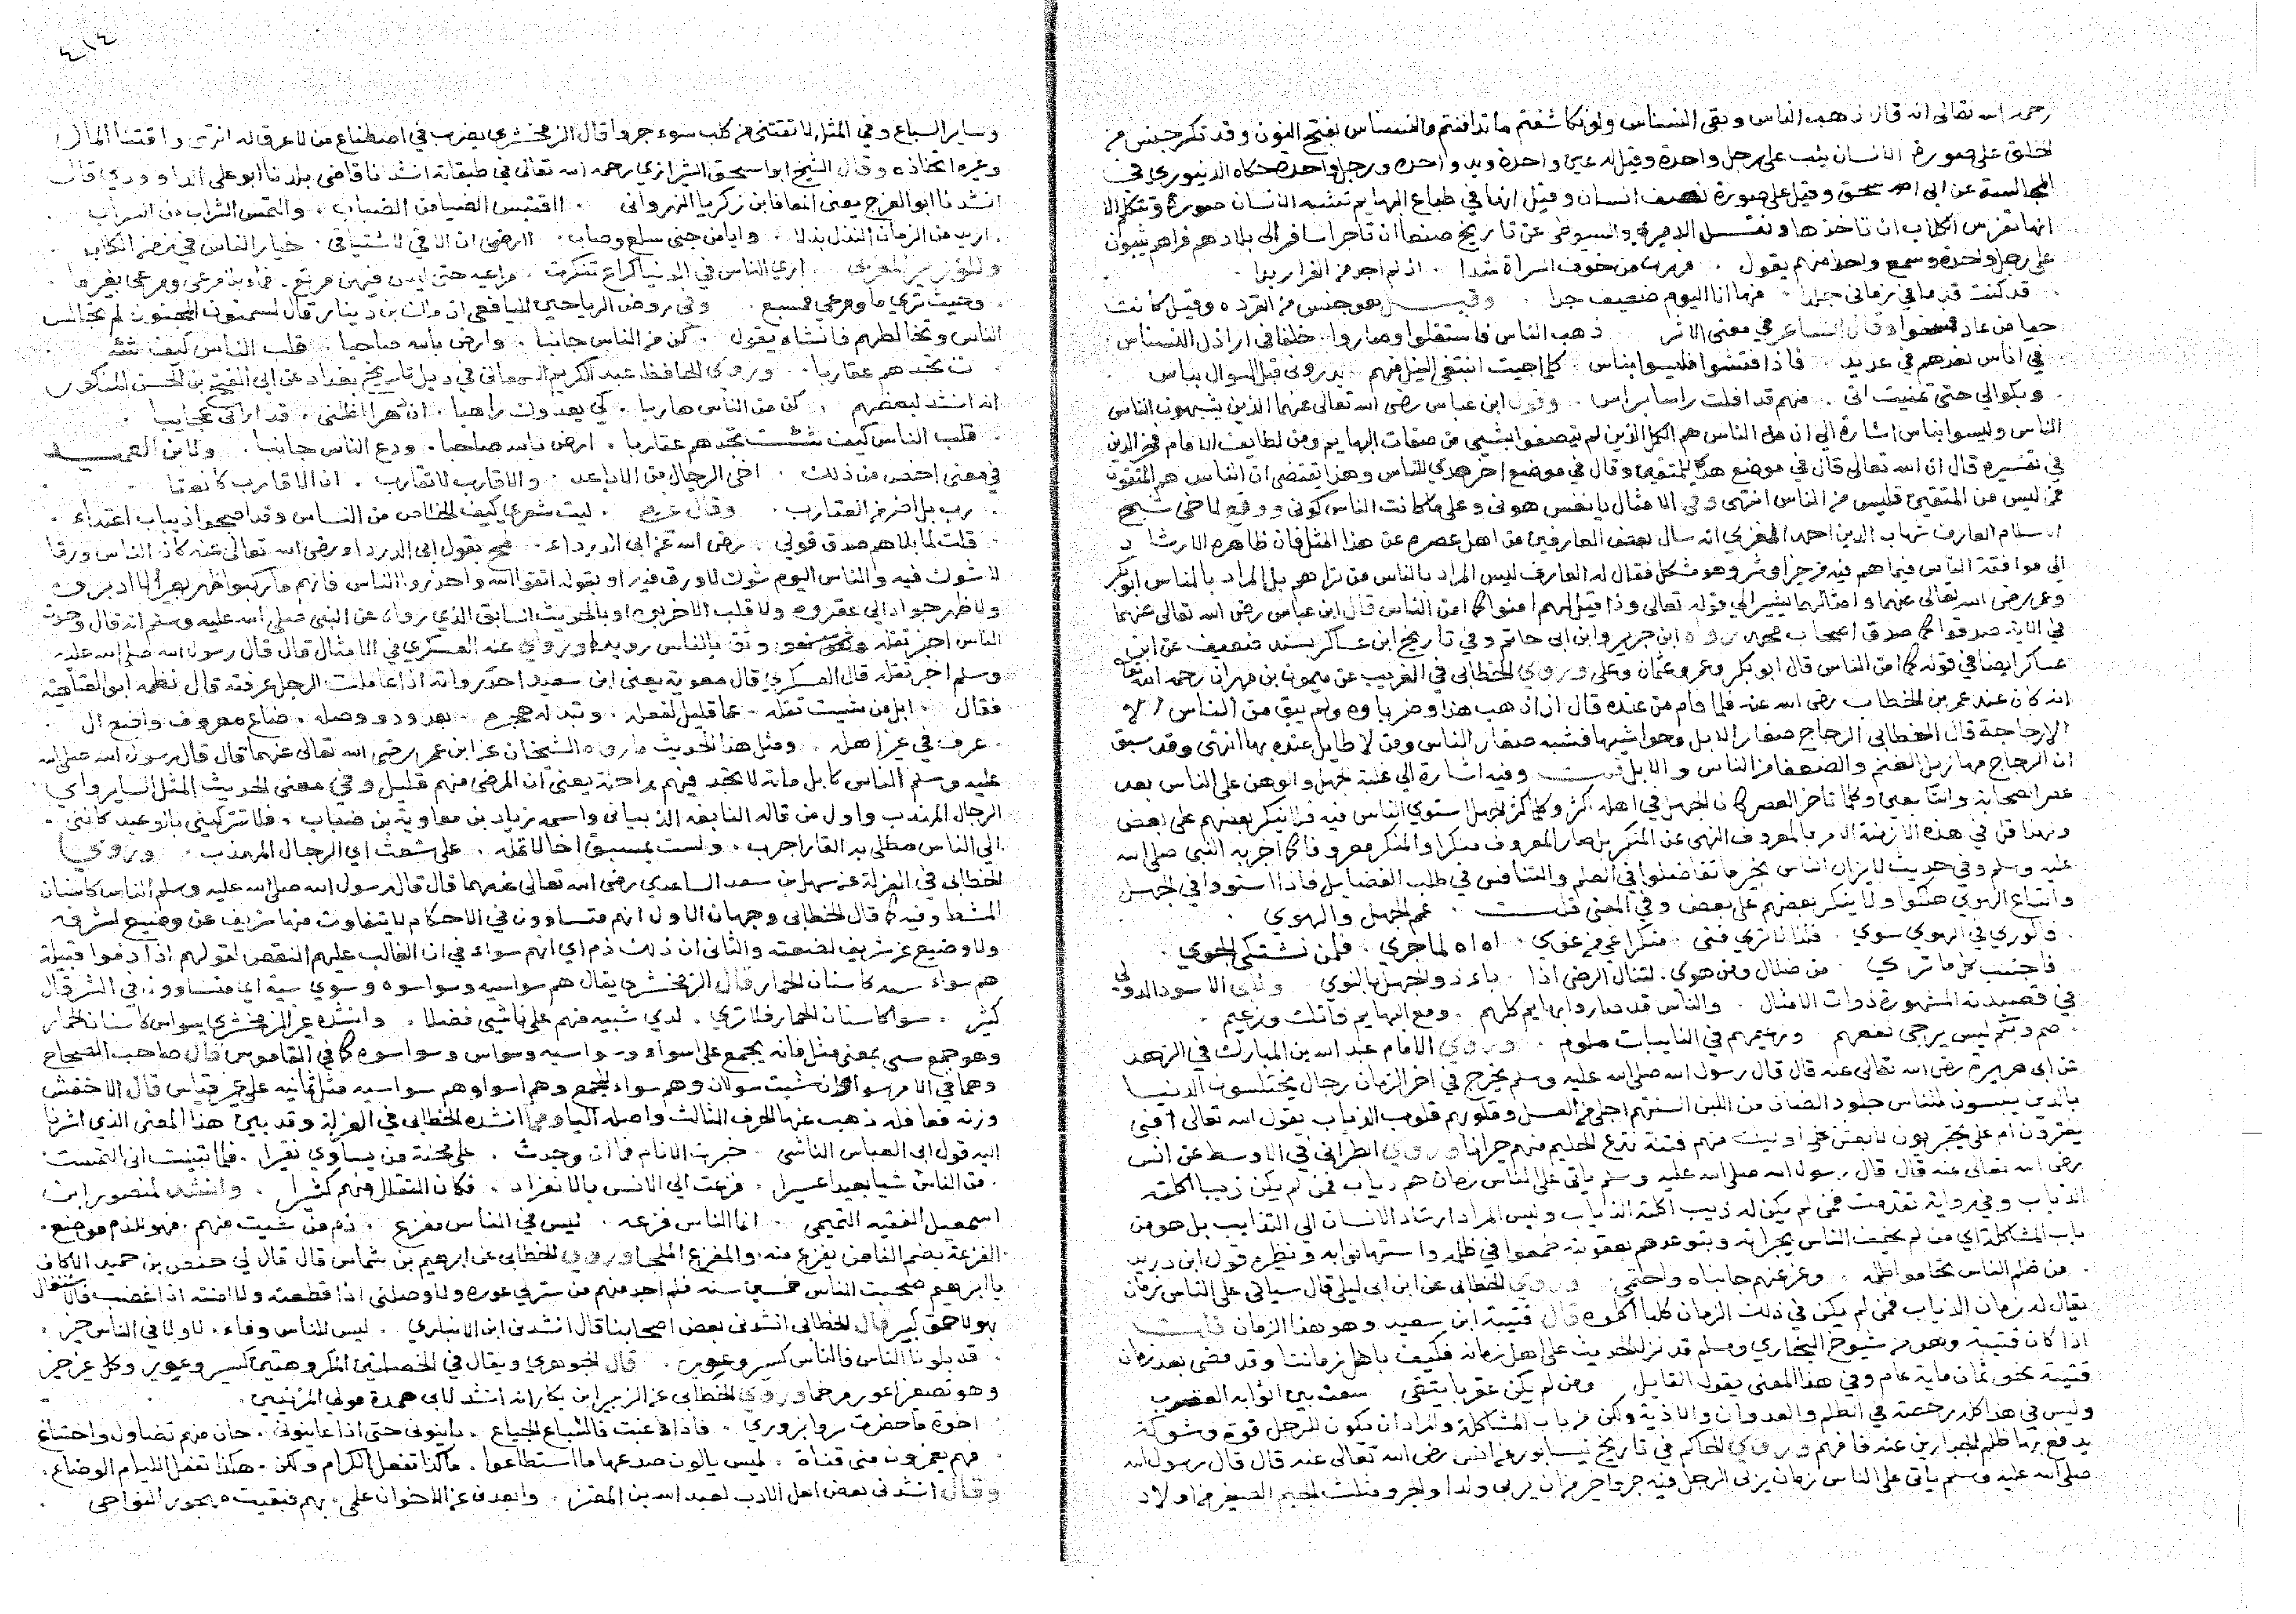 رحمه الله تعالى انه قال ذهب الناس وبقى النسناس ولو تكاشفتم ما تدافنتم والنسناس بفتح النون وقد تكسر جنس من
الخلق على صورة الانسان يثب على رجل واحدة وقيل له عين واحدة ويد واحده ورجل واحدة حكاه الدينوري في
المجالسة عن ابى اسحق وقيل على صورة نصف انسان وقيل انها في طباع البهايم تشبه الانسان صورة وتتكلم الا
انها تفرس الكلاب ان تاخذها ونقل الدميري والسيوطي عن تاريخ صنعا ان تاجرا سافر الى بلادهم فراهم يثبون
على رجل واحدة وسمع واحدا منهم يقول . فررت من خوف الشراة شدا . اذ لم اجد من الفرار بدا .
. قد كنت قدما في زماني جلدا . فها انا اليوم ضعيف جدا . وقيل هو جنس من القرده وقيل كانت
حيا من عاد فمسخوا وقال الشاعر في معنى الاثر ذهب الناس فاستقلوا وصاروا . خلفا في اراذل النسناس .
في اناس نعدهم في عديد . فاذا فتشوا فليسوا بناس . كلما جيت ابتغى النيل منهم . بدرونى قبل السوال بياس
. وبكوا لي حتى تمنيت انى . منهم قد افلت راسا براس . وقول ابن عباس رضى الله تعالى عنهما الذين يشبهون الناس
الناس وليسوا بناس اشارة الى ان هل الناس هم الكمل الذين لم يتصفوا بشيى من صفات البهايم ومن لطايف الامام فخر الدين
في تفسيره قال ان الله تعالى قال في موضع هدى للمتقين وقال في موضع اخر هدى للناس وهذا يقتضى ان الناس هم المتقون
فمن ليس من المتقين فليس من الناس انتهى وفى الامثال يا نفس هونى وعلى ما كانت الناس كونى ووقع لما خى شيخ
الاسلام العارف شهاب الدين احمد المغربى انه سال بعض العارفين من اهل عصره عن هذا المثل فان ظاهره الارشاد
الى موافقة الناس فيما هم فيه من خير او شر وهو مشكل فقال له العارف ليس المراد بالناس من تراهم بل المراد بالناس ابو بكر
وعمر رضى الله تعالى عنهما وامثالهما يشير الى قوله تعالى واذا قيل لهم امنوا كما امن الناس قال ابن عباس رضى الله تعالى عنهما
في الاية صدقوا كما صدق اصحاب محمد رواه ابن جرير وابن ابى حاتم وفي تاريخ ابن عساكر بسند ضعيف عن ابن
عساكر ايضا في قوله كما امن الناس قال ابو بكر وعمر وعثمان وعلى وروي الخطابى في الغريب عن ميمون بن مهران رحمه الله تعالى
انه كان عند عمر بن الخطاب رضى الله عنه فلما قام من عنده قال اذا ذهب هذا وضرباوه ولم يبق من الناس الا
الا رجاجة قال الخطابى الرجاج صغار الابل وحواشيها فشبه صغار الناس ومن لا طايل عنده بها انتهى وقد سبق
ان الرجاج مهازيل الغنم والضعفا من الناس والابل قلت وفيه اشارة الى غلبة الجهل والوهن على الناس بعد
عصر الصحابة والتابعين وكلما تاخر العصر كان الجهل في اهله اكثر وكلما كثر الجهل استوي الناس فيه فلا ينكر بعضهم على بعض
ولهذا قل في هذه الازمنة الامر بالمعروف النهى عن المنكر بل صار المعروف منكرا والمنكر معروفا كما اخبر به النبى صلى الله
عليه وسلم وفي حديث لا يزال الناس بخير ما تفاضلوا في العلم والتنافس في طلب الفضايل فاذا استووا في الجهل
واتباع الهوي هلكوا ولا ينكر بعضهم على بعض وفي المعنى قلت . عم الجهل والهوي .
. والوري في الهوى سوي . فلذا لا تري فتى . منكرا غى من غوي . اواه لما جري . فلمن نشتكى الجوي .
. فاجتنب كل ما تري . من ضلال ومن هوي . لتنال الرضى اذا . باء ذو الجهل بالنوي ولابى الاسود الدولى
في قصيدته المشهورة ذوات الامثال . والناس قد صاروا بهايم كلهم . ومع البهايم قاتلت وزعيم .
. صم وبكم ليس يرجى نفعهم . وزعيمهم في النايبات ملوم . وروي الامام عبد الله بن المبارك في الزهد
عن ابى هريرة رضى الله تعالى عنه قال قال رسول الله صلى الله عليه وسلم يخرج في اخر الزمان رجال يختلسون الدنيا
بالدين يلبسون للناس جلود الضان من اللين السنتهم احلى من العسل وقلوبهم قلوب الذياب يقول الله تعالى افبى
يغترون ام على يجتريون لابعثن على اوليك منهم فتنة تدع الحليم منهم حيرانا وروي الطبرانى في الاوسط عن انس
رضى الله تعالى عنه قال قال رسول الله صلى الله عليه وسلم ياتى على الناس زمان هم ذياب فمن لم يكن ذيبا اكلته
الذياب وفي رواية تقدمت فمن لم يكن له ذيب اكلته الذياب وليس المراد ارشاد الانسان الى التذايب بل هو من
باب المشاكلة اي من لم يخف الناس بجرابته ويتوعدهم بعقوبته طمعوا في ظلمه واستهانوا به ونظيره قول ابن دريد
. من ظلم الناس تحاموا ظلمه . وعز عنهم جانباه واحتمى . وروي الخطابى عن ابن ابى ليلى قال سياتى على الناس زمان
يقال له زمان الذياب فمن لم يكن في ذلك الزمان كلبا اكلوه قال قتيبة ابن سعيد وهو هذا الزمان قلت
اذا كان قتيبة وهو من شيوخ البخاري ومسلم قد نزل الحديث على اهل زمانه فكيف باهل زماننا وقد مضى بعد زمان
قتيبة نحو ثمان ماية عام وفي هذا المعنى يقول القايل ومن لم يكن عقربا يتقى سعت بين اثوابه العقرب
وليس في هذا كله رخصة في الظلم والعدوان والاذية ولكن من باب المشاكلة والمراد ان يكون للرجل قوة وشوكة
يدفع بها ظلم الجبارين عنه فافهم وروي الحاكم في تاريخ نيسابور عن انس رضى الله تعالى عنه قال قال رسول الله
صلى الله عليه وسلم ياتى على الناس زمان يربى الرجل فيه جروا خير من ان يربى ولدا والجرو مثلث الجيم الصغير من اولاد
٤١٤
وساير السباع وفي المثل لا تقتنى من كلب سوء جروا قال الزمخشري يضرب في اصطناع من لا عرق له انتهى واقتنا المال
وغيره اتخاذه وقال الشيخ ابو اسحق الشيرازي رحمه الله تعالى في طبقاته انشدنا قاضى بلدنا ابو على الداوودي قال
انشدنا ابو الفرج يعنى المعافا بن زكريا النهروانى . ااقتبس الضيا من الضباب . والتمس الشراب من السراب .
. اريد من الزمان النذل بذلا . واريا من جنى سلع وصاب . اارضى ان الاقى لاشتياقى . خيار الناس في زمن الكلاب .
وللوزير المغربى . اري الناس في الدنيا كراع تنكرت . مراعيه حتى ليس فيهن مرتع . فماء بلا مرعى ومرعى بغير ما .
. وحيث تري ما ومرعى فمسبع . وفى روض الرياحين لليافعى ان مالك بن دينار قال لسمنون المجنون لم تجالس
الناس وتخالطهم فانشاه يقول . كن من الناس جانبا . وارض بالله صاحبا . قلب الناس كيف شئت
ت تجدهم عقاربا . وروي الحافظ عبد الكريم السمعانى في ذيل تاريخ بغداد عن ابى الفتح بن الحسن المذكور
انه انشد لبعضهم . كن من الناس هاربا . كى يعدوك راهبا . ان دهرا اظلنى . قد ارانى عجايبا .
. قلب الناس كيف شئت تجدهم عقاربا . ارض بالله صاحبا . ودع الناس جانبا . ولابن العميد
في معنى اخص من ذلك . اخى الرجال من الاباعد . والاقارب لا تقارب . ان الاقارب كالعقا .
. رب بل اضر من العقارب . وقال غيره . ليت شعري كيف الخلاص من الناس وقد اصبحوا ذياب اعتداء .
. قلت لما بلاهم صدق قولى . رضى الله عن ابى الدرداء . فهم يقول ابى الدردا رضى الله تعالى عنه كان الناس ورقا
لا شوك فيه والناس اليوم شوك لا ورق فيه او بقوله اتقوا الله واحذروا الناس فانهم ما ركبوا ظهر بعير الا ادبروه
ولا ظهر جواد الى عقروه ولا قلب الا خربوه او بالحديث السابق الذي رواه عن النبى صلى الله عليه وسلم انه قال وجدت
الناس اخبر تقله وثق بالناس رويدا وروي عنه العسكري في الامثال قال قال رسول الله صلى الله عليه
وسلم اخبر تقله قال العسكري قال معوية يعنى ابن سعيد احد رواته اذا عاملت الرجل عرفته قال نظمه ابو العتاهية
فقال . ابل من شيت تقله . عما قليل لفعله . وتبدله هجره . بعد ود ووصله . ضاع معروف واضع ال .
. عرف في غير اهله . ومثل هذا الحديث ما رواه الشيخان عن ابن عمر رضى الله تعالى عنهما قال قال رسول الله صلى الله
عليه وسلم الناس كابل ماية لا تجد فيهم راحلة يعنى ان المرضى منهم قليل وفي معنى الحديث المثل الساير واي
الرجال المهذب واول من قاله النابغه الذبيانى واسمه زياد بن معاوية بن ضباب . فلا تتركينى بالوعيد كاننى .
. الى الناس مطلى به القار اجرب . ولست بمستبق اخا لا تلمه . على شعث اي الرجال المهذب . وروي
الخطابى في العزلة عن سهل بن سعد الساعدي رضى الله تعالى عنهما قال قال رسول الله صلى الله عليه وسلم الناس كاسنان
المشط وفيه كما قال الخطابى وجهان الاول انهم متساوون في الاحكام لا يتفاوت منها شريف عن وضيع لشرفه
ولا وضيع عن شريف لضعته والثانى ان ذلك ذم اي انهم سواء في ان الغالب عليهم النقص لقولهم اذا ذموا قبيلة
هم سواء سيه كاسنان الحمار قال الزمخشري يقال هم سواسيه وسواسوه وسوي سية اي متساوون في الشر قال
كثير . سوا كاسنان الحمار فلا تري . لذي شيبه منهم على ناشيى فضلا . وانشده عن الزمخشري سواس كاسنان الحمار
وهو جمع سى بمعنى مثل فانه يجمع على اسواء وسواسيه وسواس وسواسوه كما في القاموس قال صاحب الصحاح
وهما في الامر سواء وان شيت سوان وهم سواء للجمع وهم اسوا وهم سواسيه مثل ثمانيه على غير قياس قال الاخفش
وزنه فعا فله ذهب عنها الحرف الثالث واصله اليا ومما انشده الخطابى في العزلة وقد بين هذا المعنى الذي اشرنا
اليه قول ابى العباس الناشى . خبرت الانام فما ان وجدت . على محنة من يساوي نقيرا . فلما تبينت انى التمست
. من الناس شيا بعيدا عسيرا . فزعت الى الانس بالانفراد . فكان التقلل منهم كثيرا . وانشد لمنصور ابن
اسمعيل الفقيه التميمى . انما الناس فزعه . ليس في الناس مفزع . ذم من شيت منهم . فهو للذم موضع .
. الفزعة بضم الفا من يفزع منه والمفزع الملجا وروي الخطابى عن ابرهيم بن شماس قال قال لي حفص بن حميد الاكاف
يا ابرهيم صحبت الناس خمسين سنه فلم اجد منهم من ستر لي عوره ولا وصلنى اذا قطعته ولا امنته اذا غضب فالاشتغال
بهولا حمق كبير قال الخطابى انشدنى بعض اصحابنا قال انشدنى ابن الانباري . ليس للناس وفاء . لا ولا في الناس خير .
. قد بلونا الناس فالناس كسير وعوير . قال الجوهري ويقال في الخصلتين المكروهتين كسير وعوير وكل غير خير
وهو تصغير اعور مرخما وروي الخطابى عن الزبير ابن بكار انه انشد لابى حمدة مولى المزنيين .
. اخوة ما حضرت روا بزوري . فاذا غبت فالسباع الجياع . ياينونى حتى اذا عاينونى . حان منهم تضاول واختناع
. فهم يغمزون منى قناة . ليس يالون صدعها ما استطاعوا . ماكذا تفعل الكرام ولكن . هكذا تفعل الليام الوضاع .
وقال انشدنى بعض اهل الادب لعبد الله بن المعتز . وابعدنى عن الاخوان علمى . بهم فبقيت مهجور النواحى .